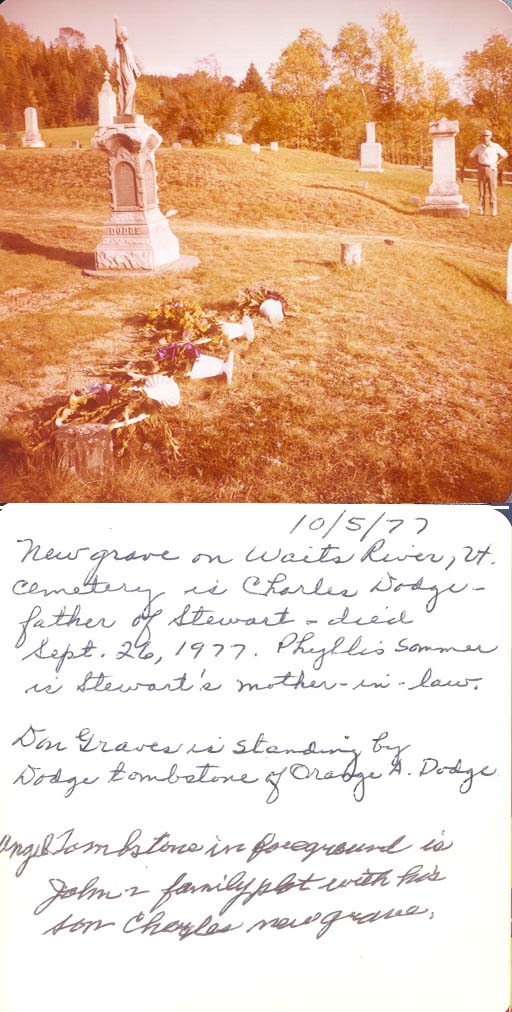 DODGE
10/5/77
New grave on Waits River, Vt.
cemetery is Charles Dodge -
father of Stewart - died
Sept. 26, 1977. Phyllis Sommer
is Stewart's mother-in-law.
Don Graves is standing by
Dodge tombstone of Orange A. Dodge
Angel Tombstone in foreground is
John family plot with his
son Charles new grave.